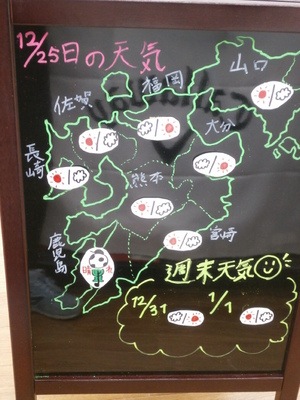 12/25日の天気
山口
福岡
佐賀
大分
長崎
熊本
宮崎
鹿児島
週末天気
12/31
1/1